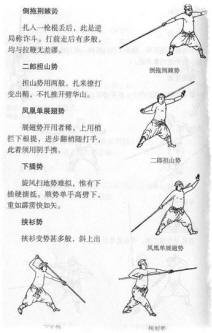 倒拖荆棘势
扎人一枪棍丢后，此是退
局称诈斗。打前走后有多般，
均与拉鞭无差谬。
倒拖荆棘势
二郎担山势
担山势用两般，扎来撩打
变出精，不扎推开劈华山。
二郎担山势
凤凰单展翅势
展翅势开用者稀，上用梢
拦下根提，进步翻梢随打手，
此着须用阴手携。
下插势
旋风扫地势难拟，惟有下
插硬捷抵。顺势单手高劈下，
重如霹雳快如矢。
凤凰单展翅势
挟衫势
挟衫变势甚多般，斜上出